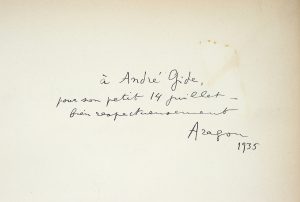 à André Gide,
pour son petit 14 juillet –
bien respectueusement
Aragon
1935